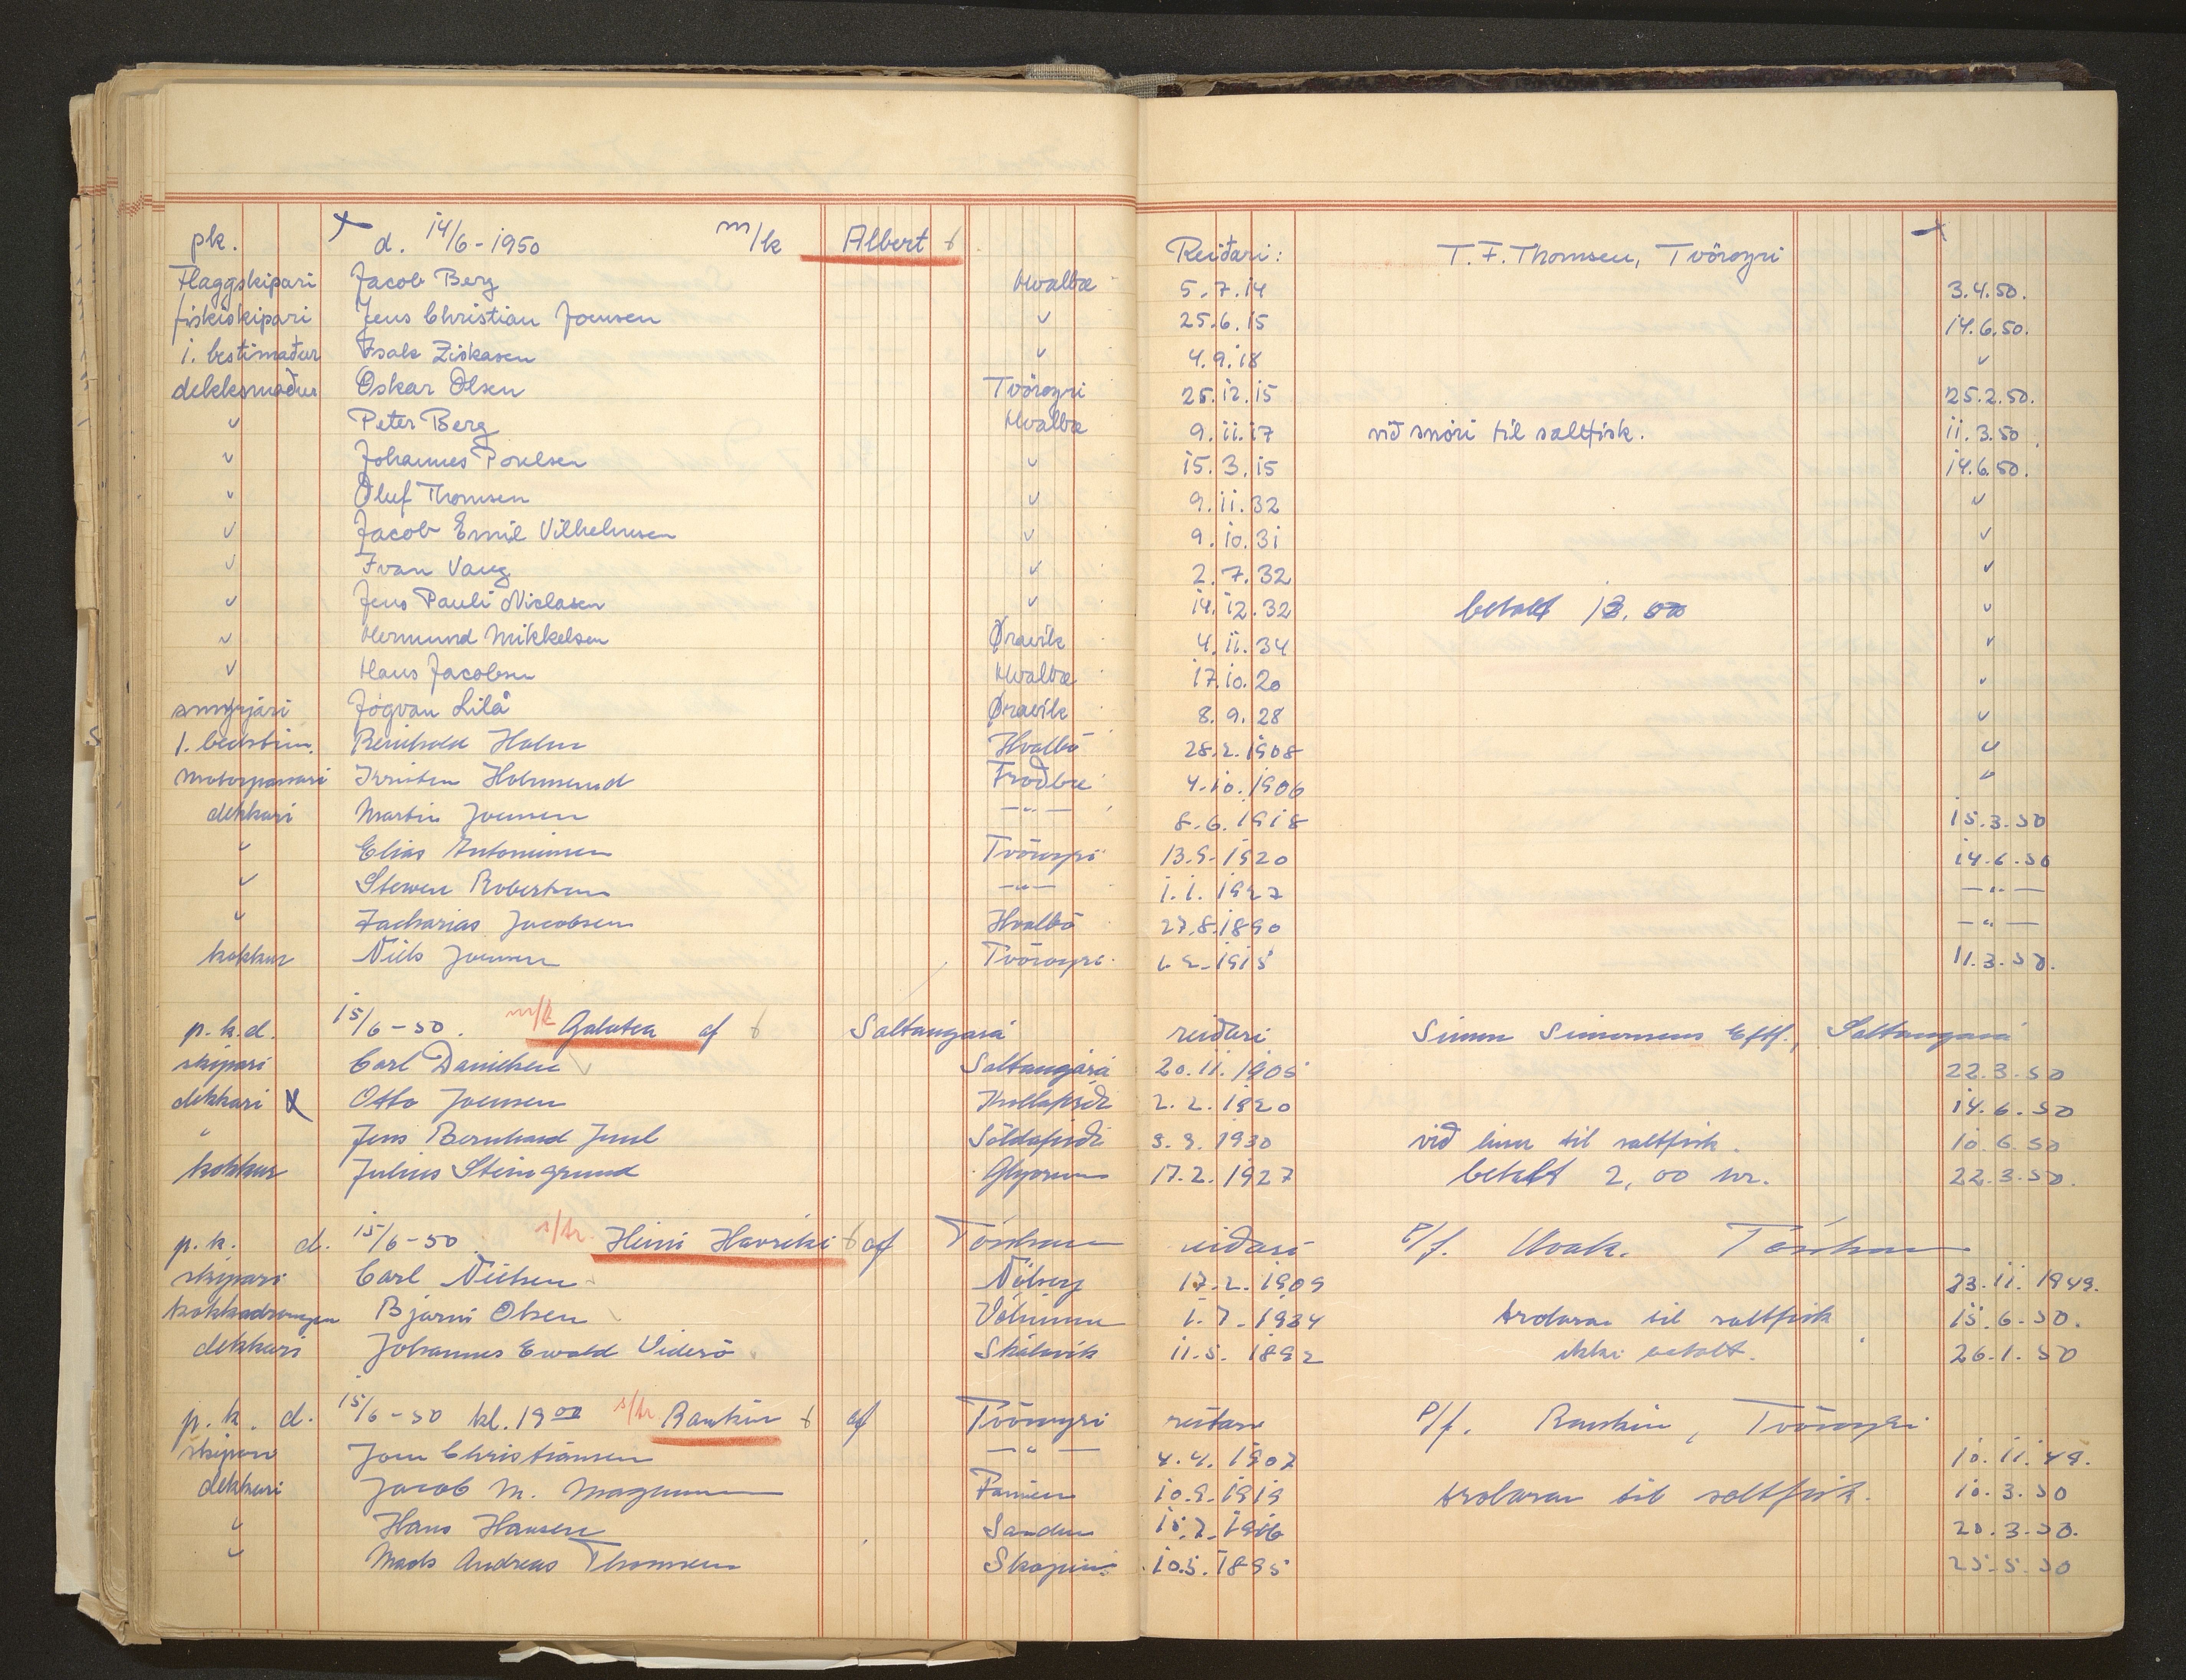 pk. d. 14/6-1950 m/k Albert Reiðari: T. F. Thomsen, Tvöroyri
Flaggskipari Jacob Berg Hvalbæ 5.7.14 3.4.50.
fiskiskipari Jens Christian Joensen " 25.6.15 14.6.50.
1. bestimaður Isak Ziskasen " 4.9.18 "
dekksmaður Oskar Olsen Tvöroyri 25.12.15 25.2.50.
" Peter Berg Hvalbæ 9.11.17 við snöri til saltfisk. 11.3.50
" Johannes Poulsen " 15.3.15 14.6.50.
" Oluf Thomsen " 9.11.32 "
" Jacob Emil Vilhelmsen " 9.10.31 "
" Ivan Vang " 2.7.32 "
" Jens Pauli Niclasen " 14.12.32 betalt "
" Hermund Mikkelsen Øravík 4.11.34 "
" Hans Jacobsen Hvalbæ 17.10.20 "
smyrjari Jógvan Lilá Øravík 8.9.28 "
1. bestim. Reinhold Holm Hvalbö 28.2.1908 "
motorpassari Holmsund Froðbæ 4.10.1906 "
dekkari Martin Joensen —"— 8.6.1918 15.3.50
" Elias Antoniussen Tvöroyri 13.9.1920 14.6.50
" Stewen Robertson —"— 1.1.1927 —"—
" Zacharias Jacobsen Hvalbö 27.8.1890 —"—
kokkur Niels Joensen Tvöroyri 1915 11.3.50.
p.k.d. 15/6-50. m/k Galatea af Saltangará reiðari Simun Simonsens Eftf., Saltangará
skipari Carl Danielsen Saltangará 20.11.1905 22.3.50
dekkari Otto Joensen Kollafirði 2.2.1920 14.6.50
" Jens Bernhard Juul Söldafirði 9.9.1930 við linu til saltfisk. 10.6.50
kokkur Julius Steingrund Glyvrum 17.2.1927 betalt 2,00 kr. 22.3.50.
p.k. d. 15/6-50 s/tr. Heini Havreki af Tórshavn reiðari P/f. Tórshavn
skipari Carl Nielsen Nólsoy 17.2.1909 23.11.1949.
kokkadrongur Bjarni Olsen 1.7.1934 trolarar til saltfisk 15.6.50.
dekkari Johannes Ewald Viderö Skálavík 11.5.1892 ikki betalt. 26.1.50
p.k. d. 15/6-50 kl. 19 00 s/tr. Rankin af Tvöroyri reiðari P/f. Rankin, Tvöroyri
skipari Joen Christiansen —"— 4.4.1907 10.11.49.
dekkari Jacob M. Magnussen Famien 10.9.1919 trolarar til saltfisk. 10.3.50
" Hans Hansen Sandur 20.3.50.
" Mads Andreas Thomsen Skopun 10.5.1895 25.5.50